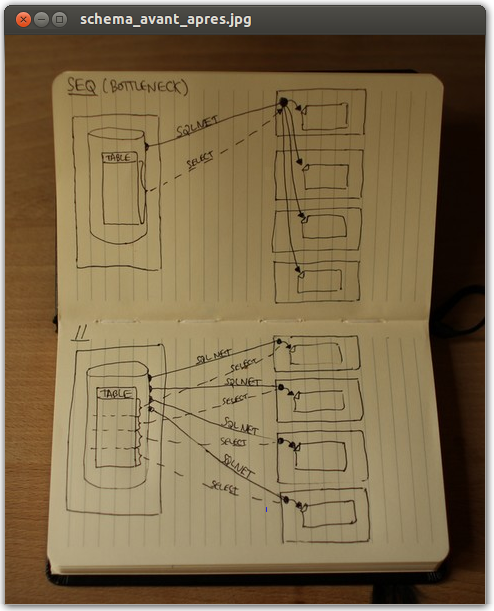 schema_avant_apres.jpg
SEQ (BOTTLENECK)
SQLNET
TABLE
SELECT
//
SQLNET
SELECT
SQLNET
TABLE
SELECT
SQLNET
SELECT
SQLNET
SELECT